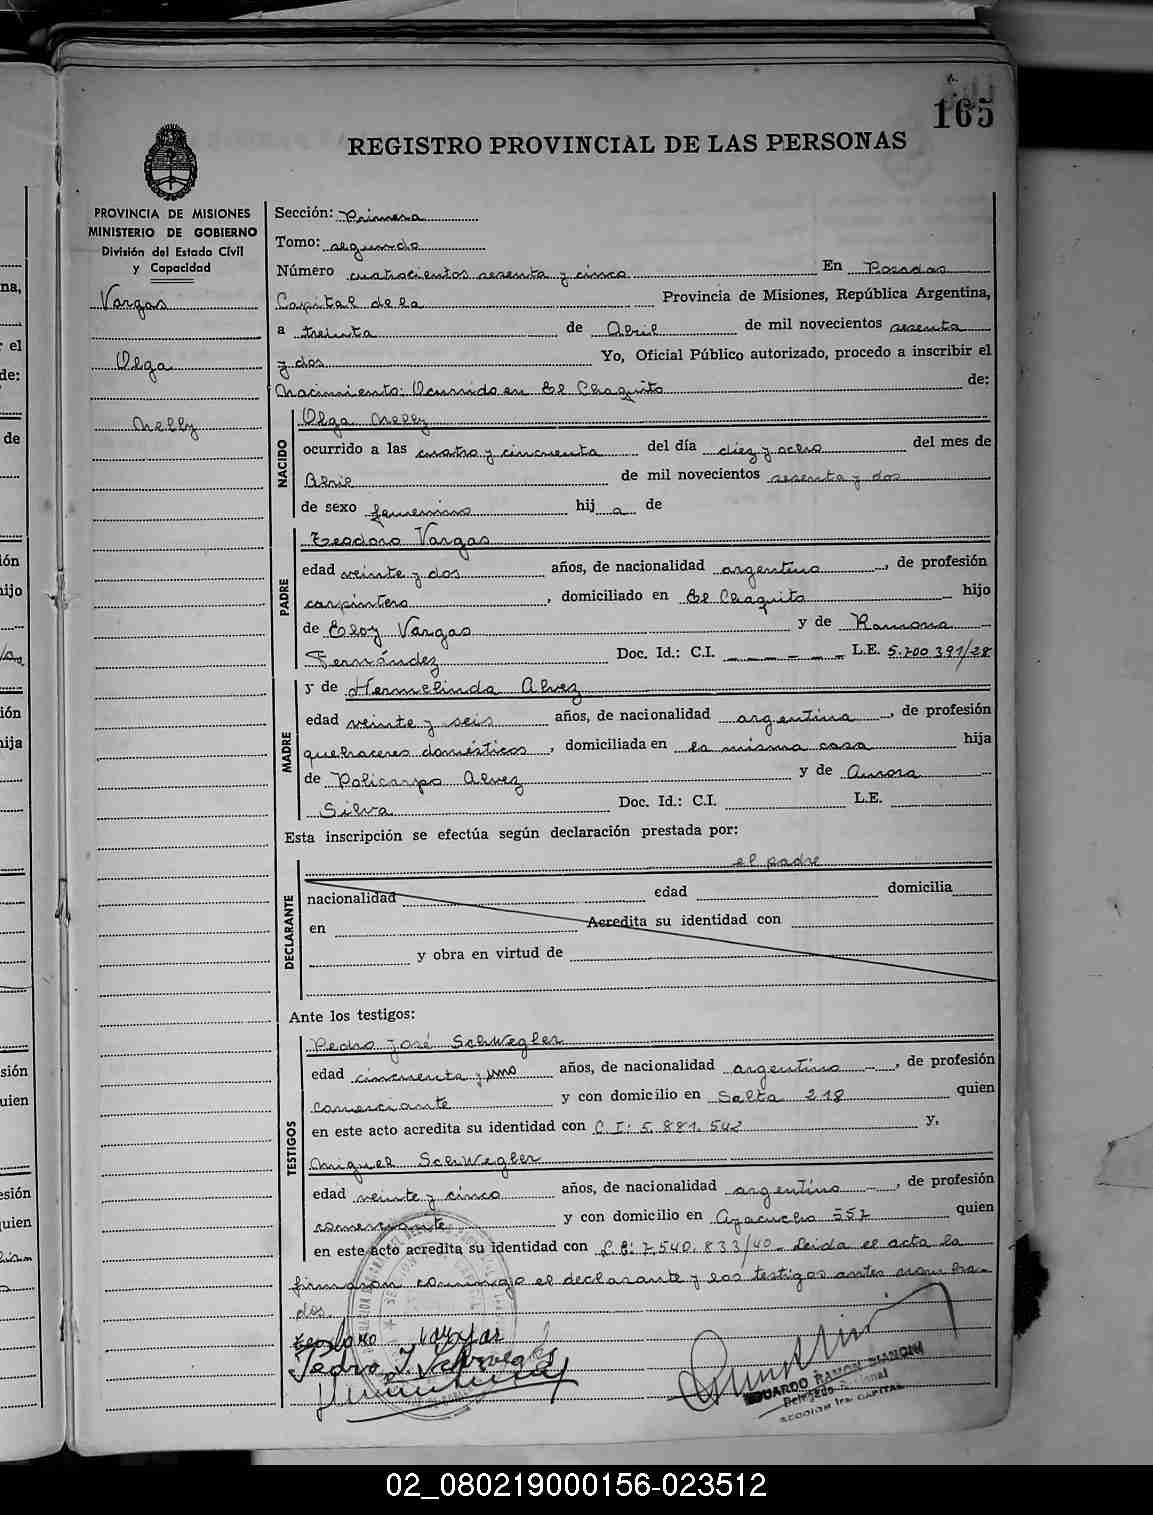 165
REGISTRO PROVINCIAL DE LAS PERSONAS
PROVINCIA DE MISIONES
MINISTERIO DE GOBIERNO
División del Estado Civil
y Capacidad
Vargas
Olga
Nelly
Sección: Primera
Tomo: segundo
Número cuatrocientos sesenta y cinco En Posadas
Capital de la Provincia de Misiones, República Argentina,
a treinta de Abril de mil novecientos sesenta
y dos Yo, Oficial Público autorizado, procedo a inscribir el
Nacimiento: Ocurrido en El Chaquito de:
NACIDO
Olga Nelly
ocurrido a las cuatro y cincuenta del día diez y ocho del mes de
Abril de mil novecientos sesenta y dos
de sexo femenino hij a de
PADRE
Teodoro Vargas
edad veinte y dos años, de nacionalidad argentino, de profesión
carpintero, domiciliado en El Chaquito hijo
de Eloy Vargas y de Ramona
Fernández Doc. Id.: C.I. — — — — — — L.E. 5.700.391/28
MADRE
y de Hermelinda Alvez
edad veinte y seis años, de nacionalidad argentina, de profesión
quehaceres domésticos, domiciliada en la misma casa hija
de Policarpo Alvez y de Aurora
Silva Doc. Id.: C.I. L.E.
Esta inscripción se efectúa según declaración prestada por:
DECLARANTE
el padre
nacionalidad edad domicilia
en Acredita su identidad con
y obra en virtud de
Ante los testigos:
TESTIGOS
Pedro José Schwegler
edad cincuenta y uno años, de nacionalidad argentino, de profesión
comerciante y con domicilio en Salta 218 quien
en este acto acredita su identidad con C.I: 5.881.542 y,
Miguel Schwegler
edad veinte y cinco años, de nacionalidad argentino, de profesión
comerciante y con domicilio en Ayacucho 557 quien
en este acto acredita su identidad con L.E: 7.540.833/40. Leida el acta la
firmaron conmigo el declarante y los testigos antes nombra-
dos.
Teodoro Vargas
Pedro J. Schwegler
EDUARDO RAMON BIANCHI
Delegado Seccional
SECCION 1ra. CAPITAL
02_080219000156-023512